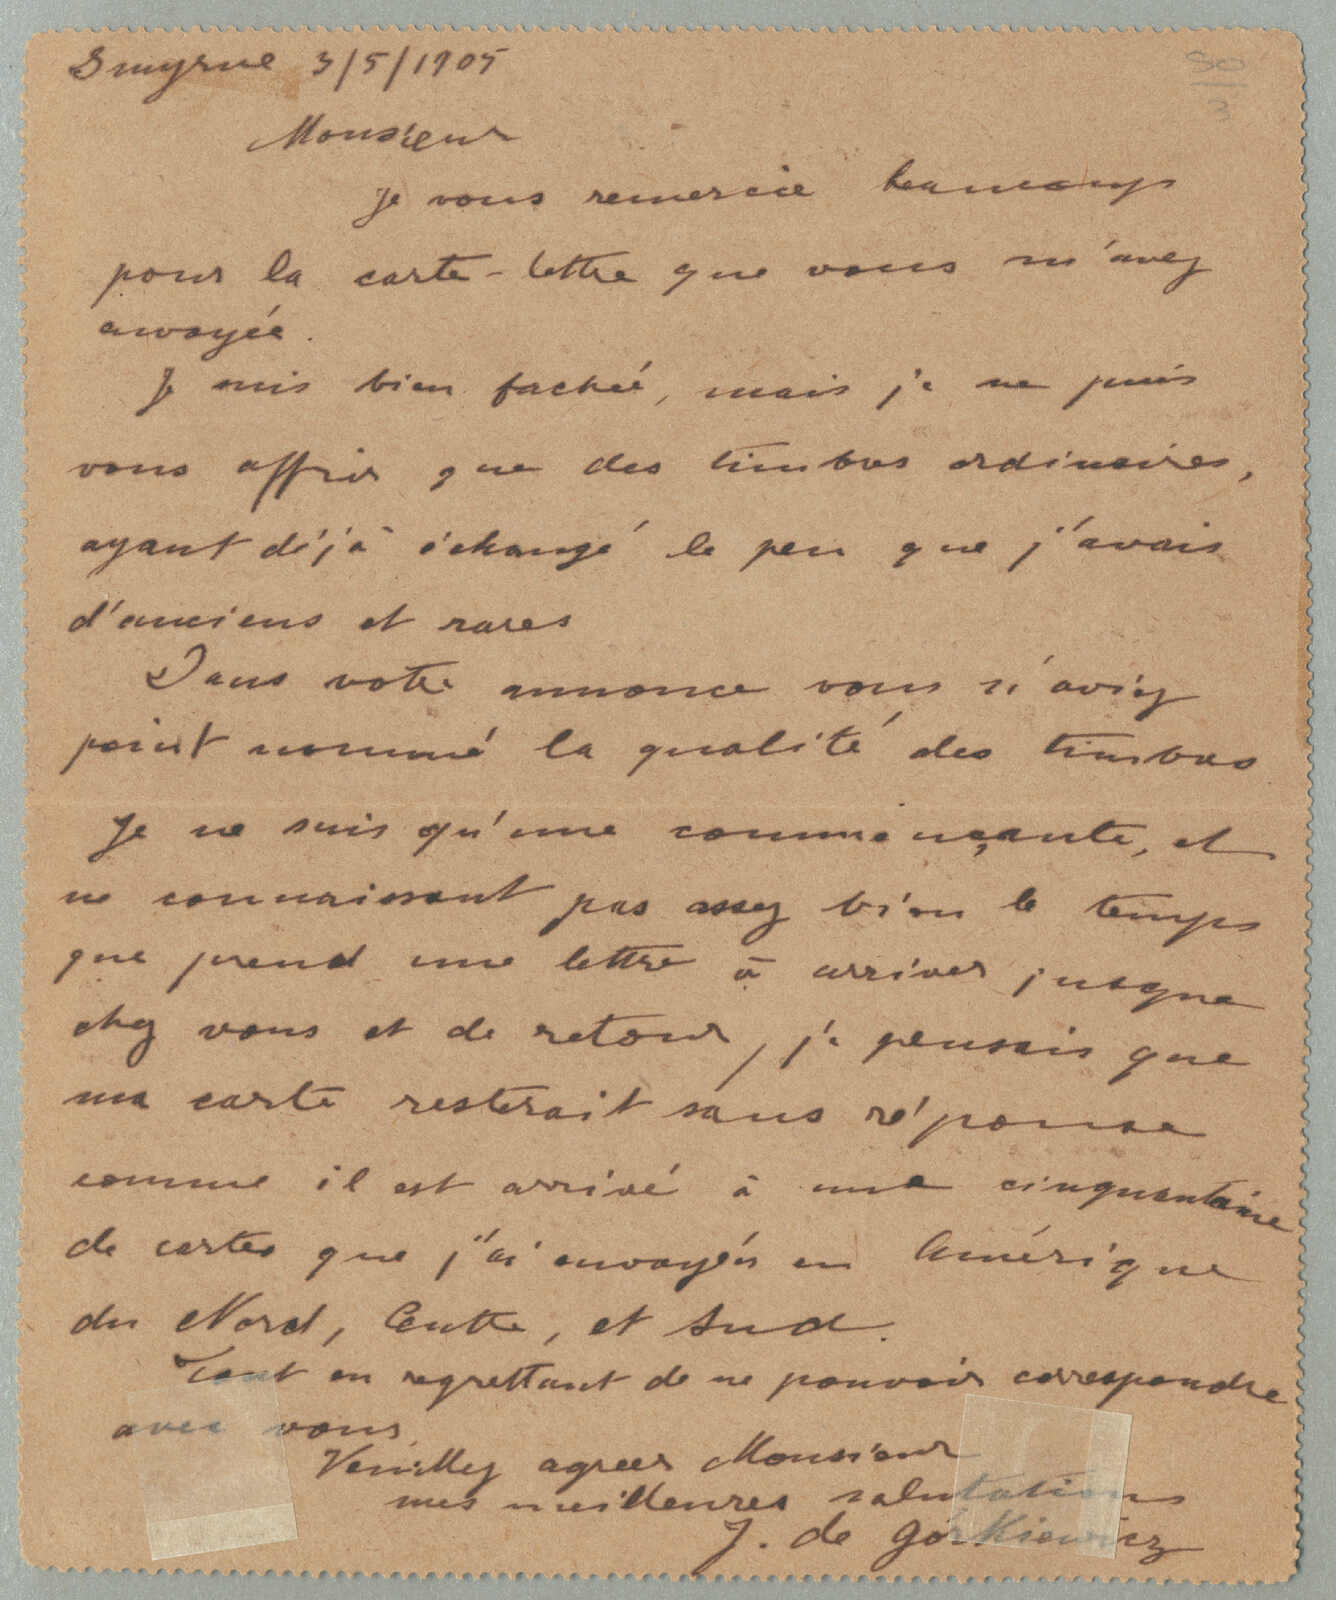 Smyrne 3/5/1905
50
3
Monsieur
Je vous remercie beaucoup
pour la carte-lettre que vous m'avez
envoyée.
Je suis bien fachée, mais je ne puis
vous offrir que des timbres ordinaires,
ayant déjà échangé le peu que j'avais
d'anciens et rares
Dans votre annonce vous n'aviez
point nommé la qualité des timbres
Je ne suis qu'une commençante, et
ne connaissant pas assez bien le temps
que prend une lettre à arriver jusque
chez vous et de retour, je pensais que
ma carte resterait sans réponse
comme il est arrivé à une cinquantaine
de cartes que j'ai envoyés en Amérique
du Nord, Centre, et Sud.
Tout en regrettant de ne pouvoir correspondre
avec vous
Veuillez agreer Monsieur
mes meilleures salutations
J. de Górkiewicz